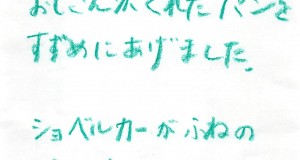 おじさんがくれたパンを
すずめにあげました。
ショベルカーがふねの